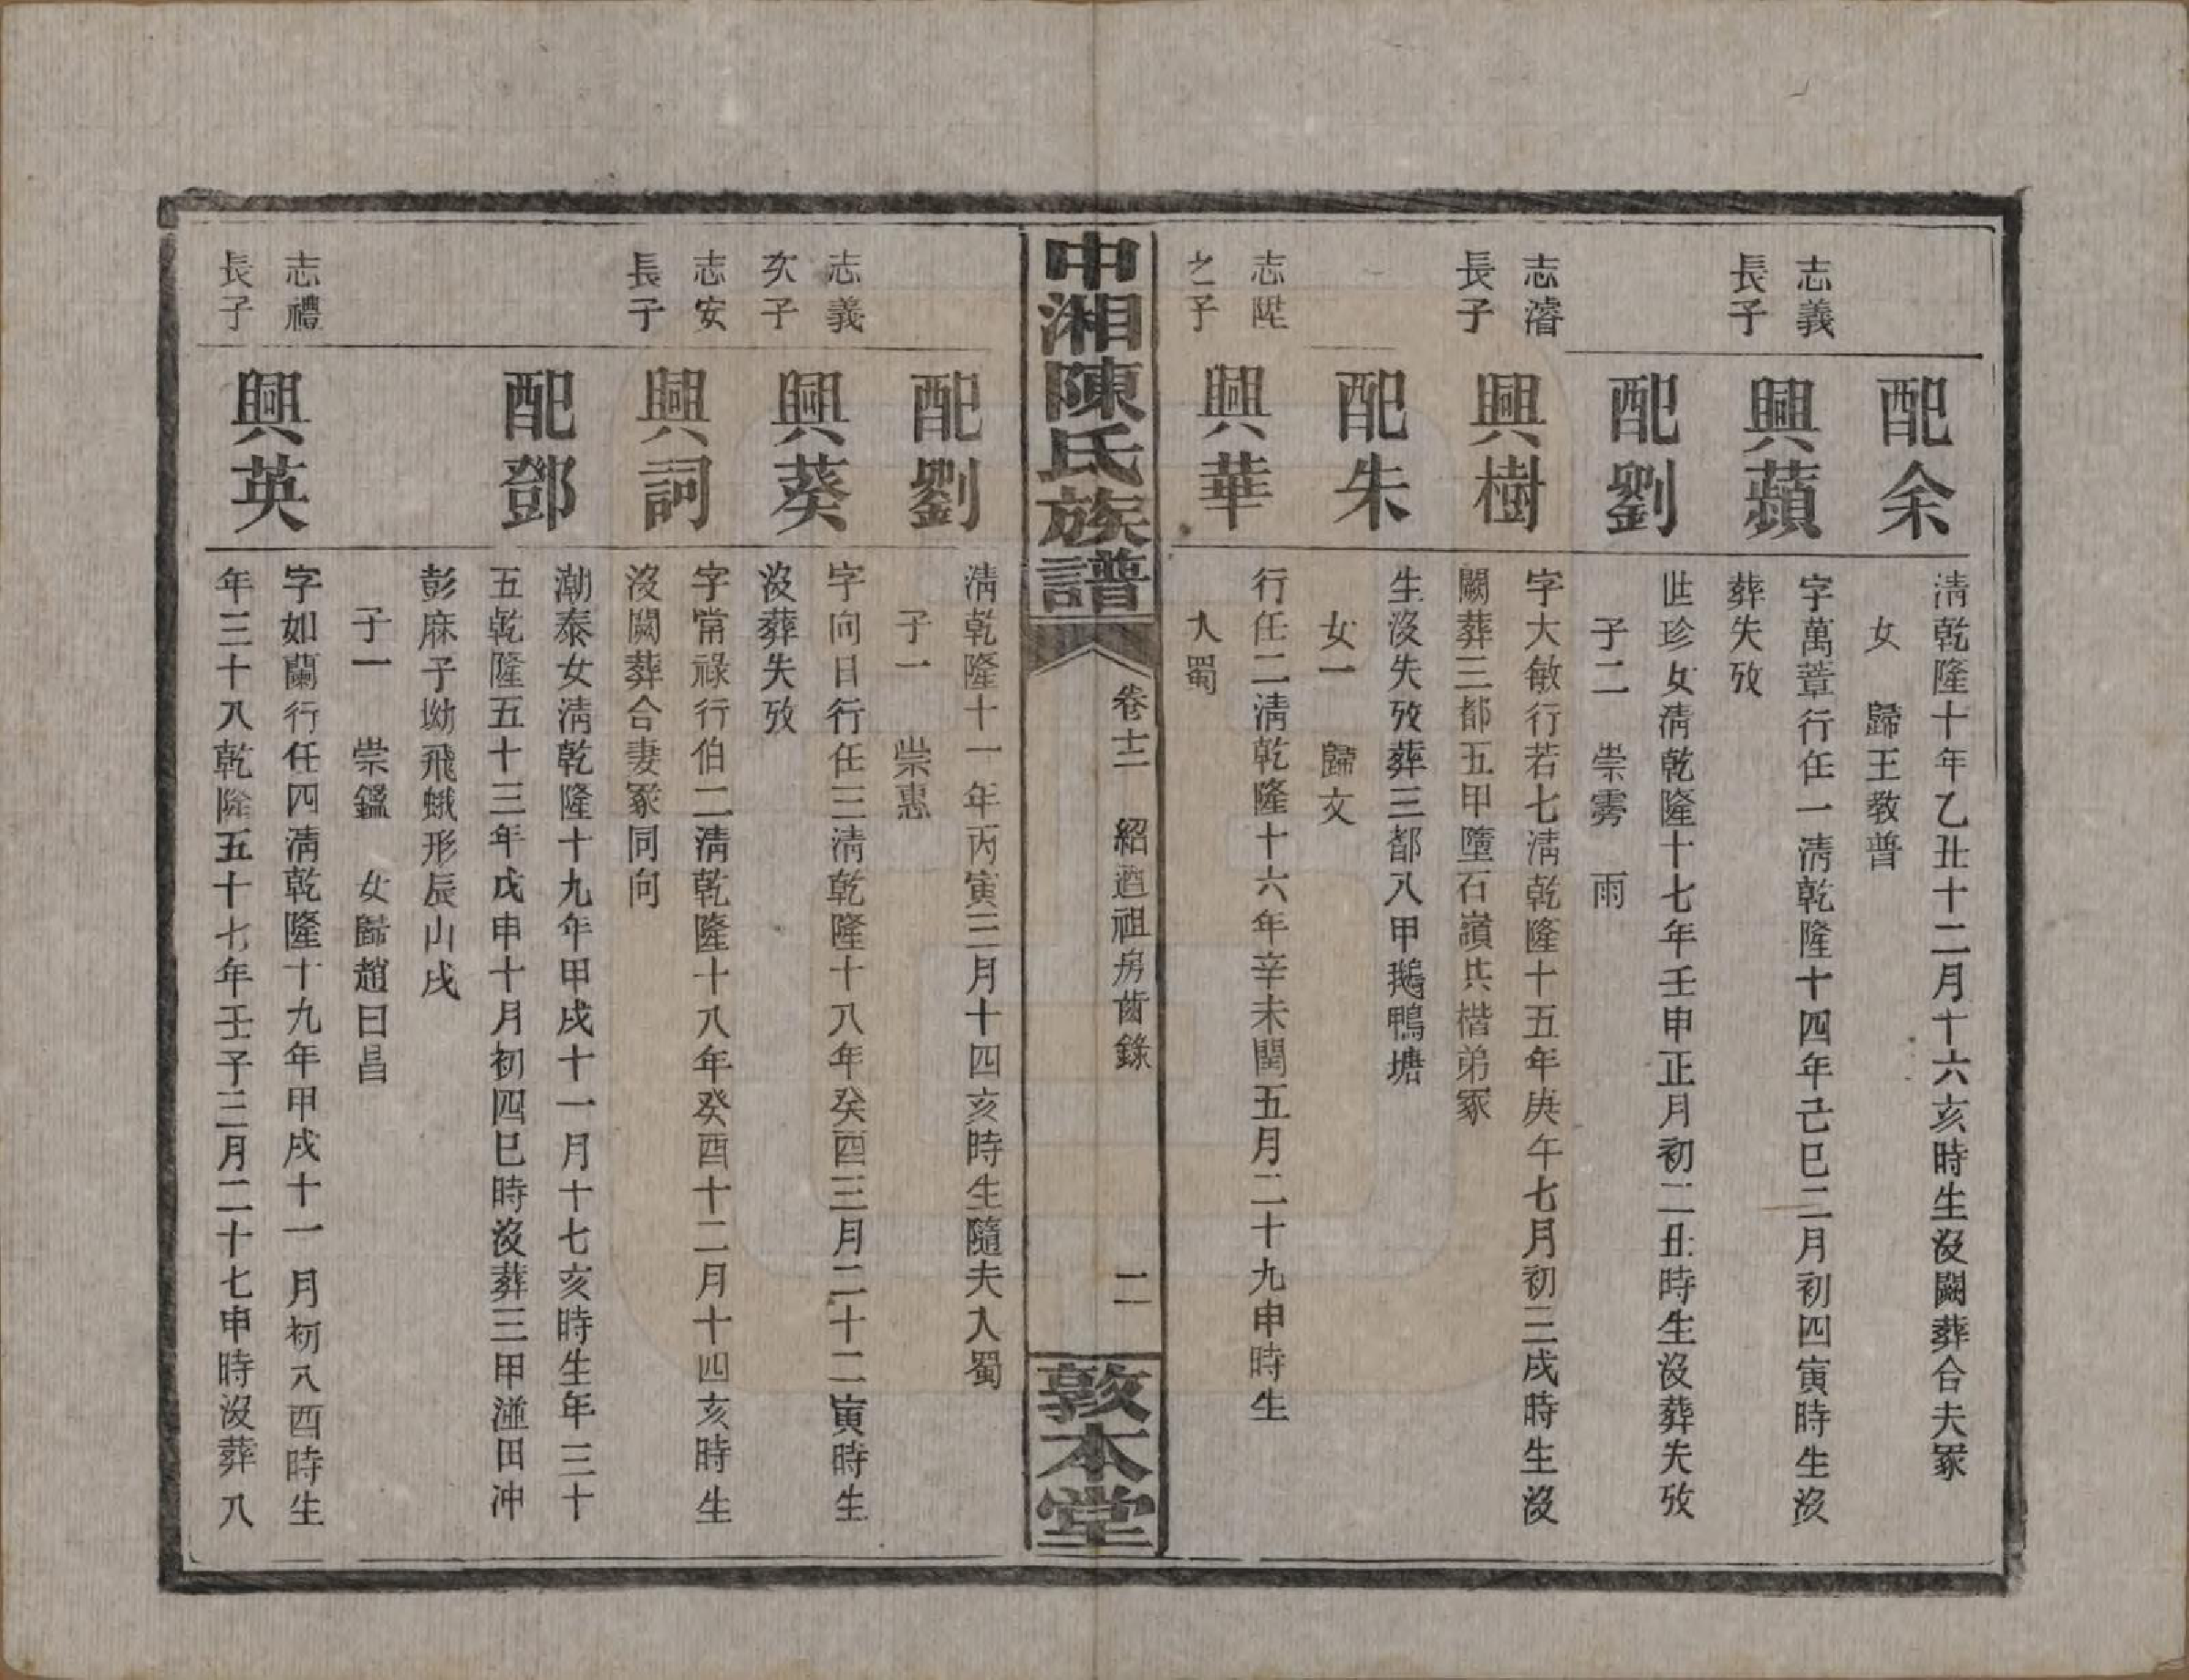 配余
清乾隆十年乙丑十二月十六亥時生沒闕葬合夫冢
女　歸王教普
志義
長子
興蘋
字萬蕈行任一清乾隆十四年己巳二月初四寅時生沒
葬失攷
配劉
世珍女清乾隆十七年壬申正月初二丑時生沒葬失攷
子二　崇雰　雨
志濬
長子
興樹
字大敏行若七清乾隆十五年庚午七月初三戌時生沒
闕葬三都五甲墮石嶺共楷弟冢
配朱
生沒失攷葬三都八甲鵝鴨塘
女一　歸文
志陞
之子
興華
行任二清乾隆十六年辛未閏五月二十九申時生
入蜀
中湘陳氏族譜
卷十二　紹逈祖房齒錄
二
敦本堂
配劉
清乾隆十一年丙寅三月十四亥時生隨夫入蜀
子一　崇惠
志義
次子
興葵
字向日行任三清乾隆十八年癸酉三月二十二寅時生
沒葬失攷
志安
長子
興詞
字常祿行伯二清乾隆十八年癸酉十二月十四亥時生
沒闕葬合妻冢同向
配鄧
潮泰女清乾隆十九年甲戌十一月十七亥時生年三十
五乾隆五十三年戊申十月初四巳時沒葬三甲湴田冲
彭麻子坳飛蛾形辰山戌
子一　崇鑑　女歸趙日昌
志禮
長子
興英
字如蘭行任四清乾隆十九年甲戌十一月初八酉時生
年三十八乾隆五十七年壬子三月二十七申時沒葬八